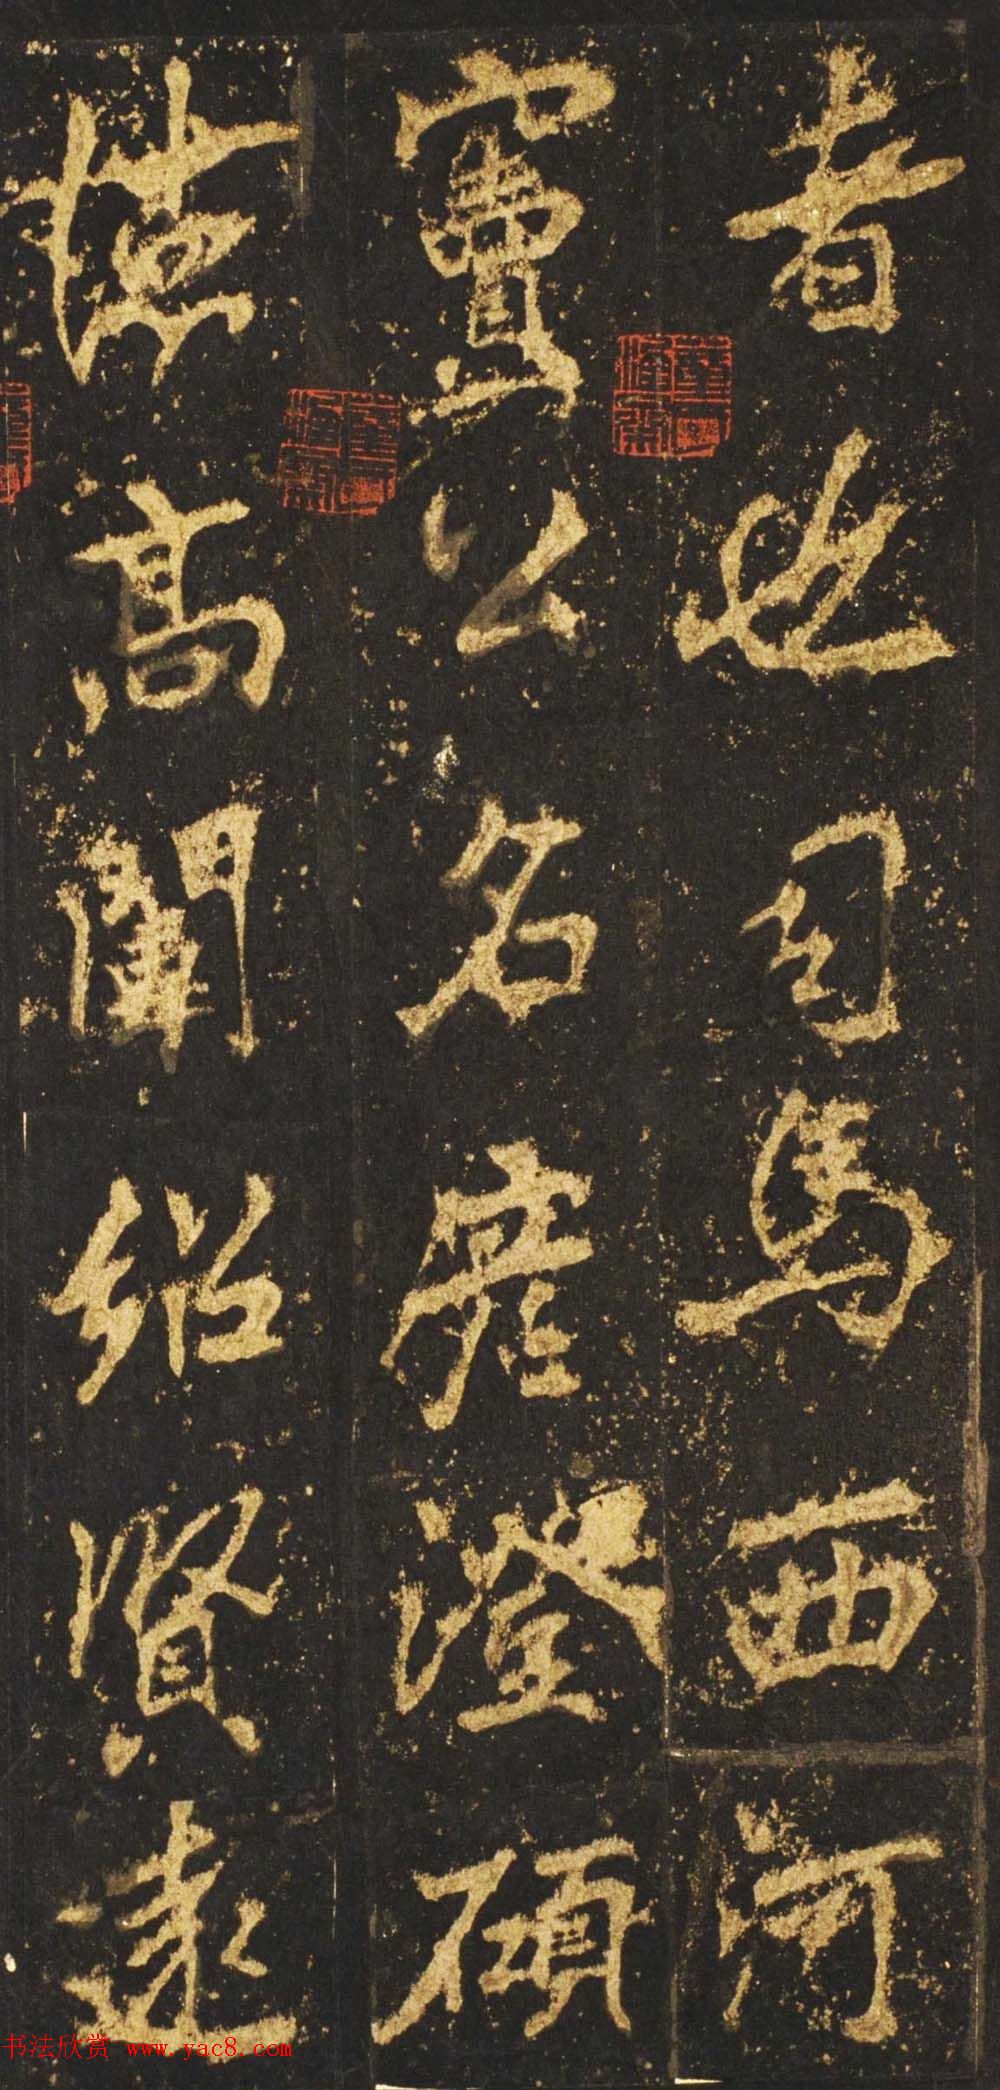 者也司馬西河
竇公名彥澄碩
德高闡紹賢遠
书法欣赏 www.yac8.com